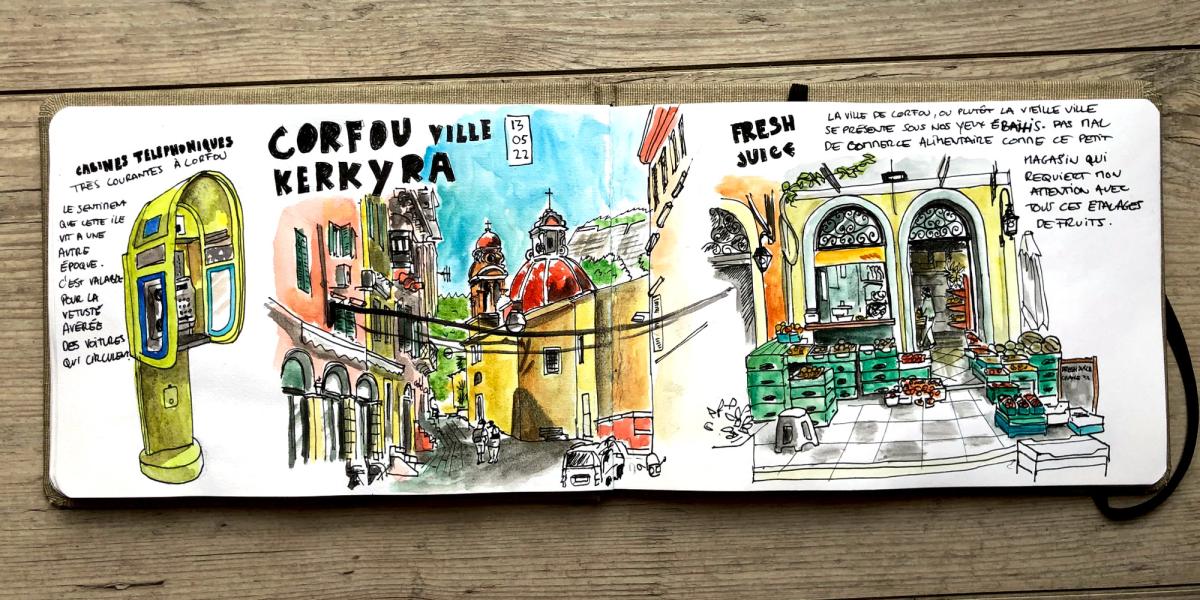 CABINES TELEPHONIQUES
TRES COURANTES À CORFOU
LE SENTIMENT
QUE CETTE ILE
VIT A UNE
AUTRE
ÉPOQUE.
C'EST VALABLE
POUR LA
VETUSTÉ
AVÉRÉE
DES VOITURES
QUI CIRCULENT.
CORFOU VILLE
KERKYRA
13
05
22
FRESH
JUICE
LA VILLE DE CORFOU, OU PLUTÔT LA VIEILLE VILLE
SE PRÉSENTE SOUS NOS YEUX ÉBAHIS. PAS MAL
DE COMMERCE ALIMENTAIRE COMME CE PETIT
MAGASIN QUI
REQUIERT MON
ATTENTION AVEC
TOUS CES ETALAGES
DE FRUITS.
FRESH JUICE